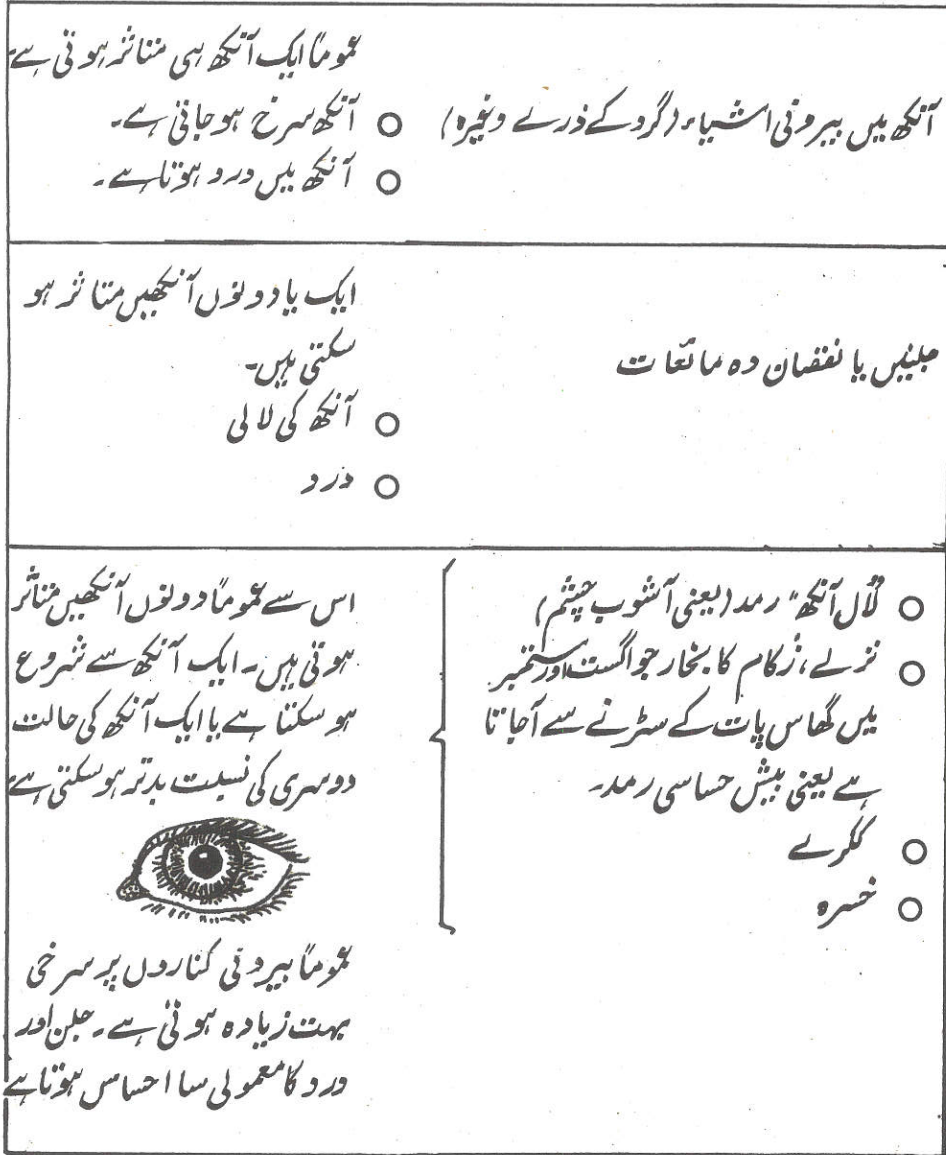 آنکھ میں بیرونی اشیاء (گرد کے ذرے وغیرہ)
عموماً ایک آنکھ ہی متاثر ہوتی ہے
○ آنکھ سرخ ہو جاتی ہے۔
○ آنکھ میں درد ہوتا ہے۔
جلنیں یا نقصان دہ مائعات
ایک یا دونوں آنکھیں متاثر ہو
سکتی ہیں۔
○ آنکھ کی لالی
○ درد
○ لال آنکھ" رمد (یعنی آشوب چشم)
○ نزلے، زکام کا بخار جو اگست اور ستمبر
میں گھاس پات کے سڑنے سے آجاتا
ہے یعنی بیش حساسی رمد۔
○ ککرے
○ خسرہ
اس سے عموماً دونوں آنکھیں متاثر
ہوتی ہیں۔ ایک آنکھ سے شروع
ہو سکتا ہے یا ایک آنکھ کی حالت
دوسری کی نسبت بدتر ہوسکتی ہے
عموماً بیرونی کناروں پر سرخی
بہت زیادہ ہوتی ہے۔ جلن اور
درد کا معمولی سا احساس ہوتا ہے